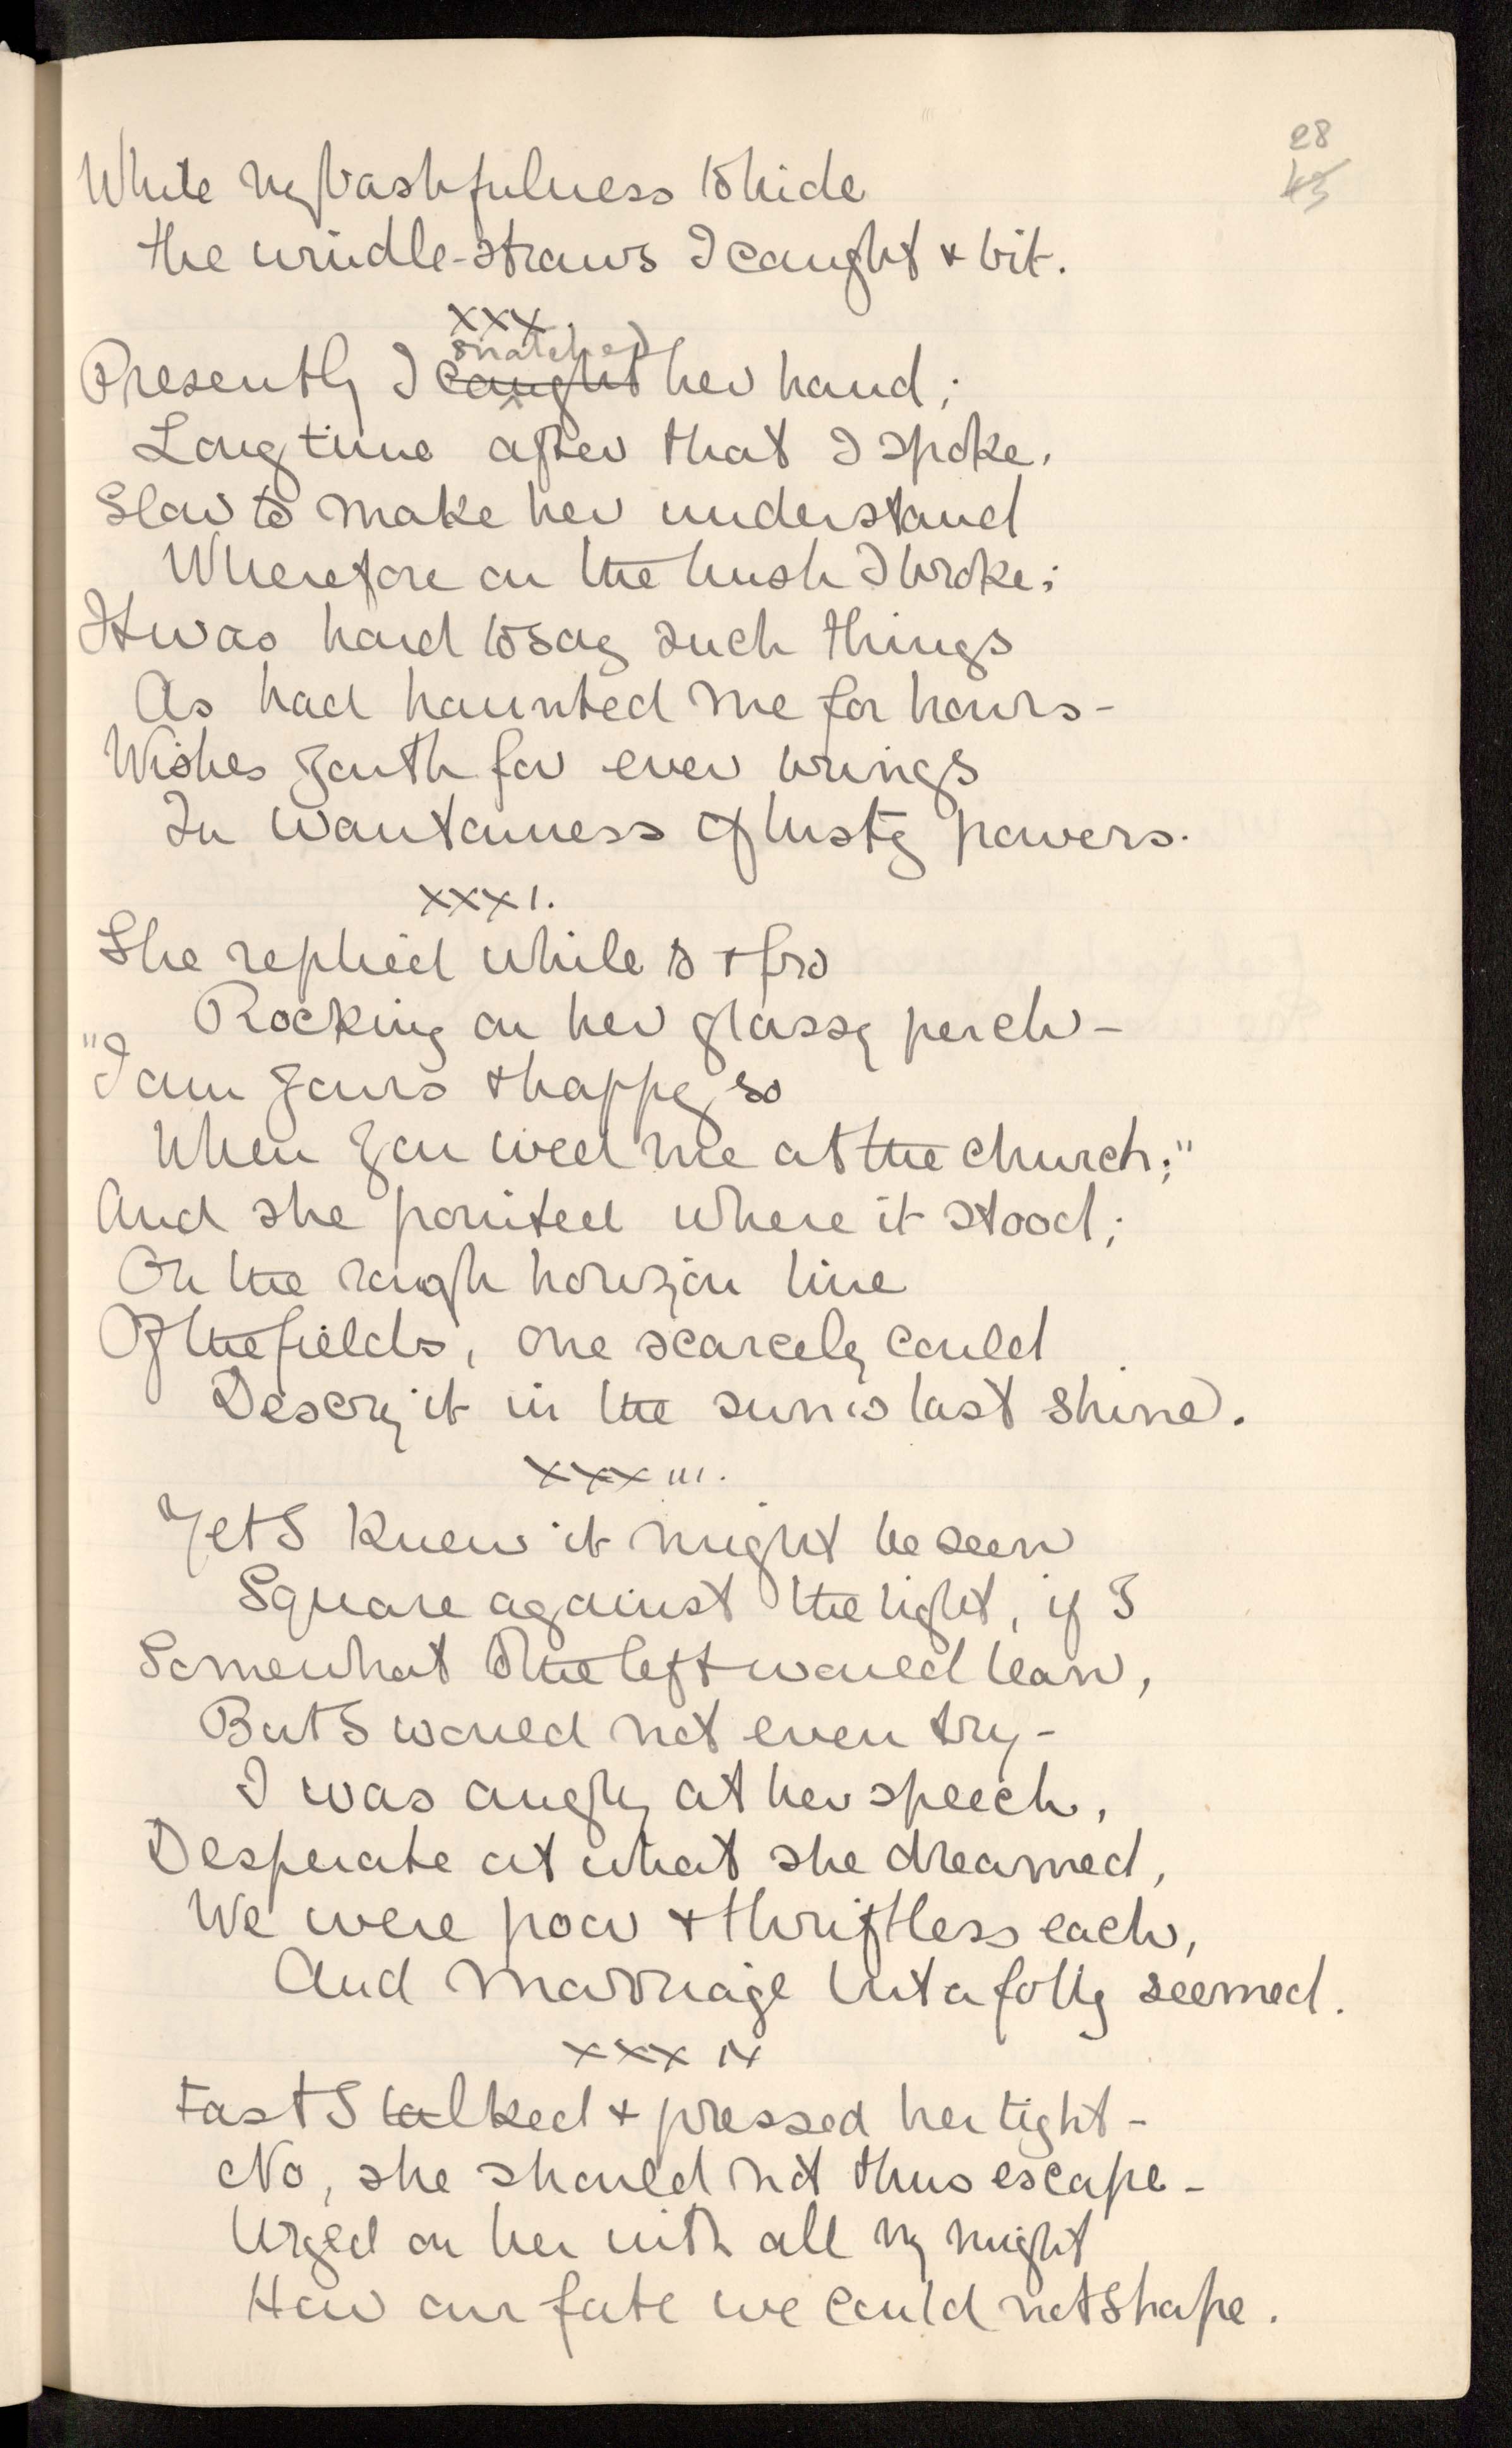 28
43
While my bashfulness to hide
the windle-straws I caught & bit.
XXX.
snatched
Presently I caught her hand;
Long time after that I spoke,
Slow to make her understand
Wherefore on the hush I broke;
It was hard to say such things
As had haunted me for hours -
Wishes youth for ever brings
In wantonness of lusty powers.
XXXI.
She replied while to & fro
Rocking on her glassy perch -
"I am yours & happy, so
When you wed me at the church;"
And she pointed where it stood;
On the rough horizon line
Of the fields, one scarcely could
Descry it in the sun's last shine.
XXXIII.
Yet I knew it might be seen
Square against the light, if I
Somewhat to the left would lean,
But I would not even try -
I was angry at her speech,
Desperate at what she dreamed,
We were poor & thriftless each,
And marriage but a folly seemed.
XXXIV
Fast I talked & pressed her tight -
No, she should not thus escape -
Urged on her with all my might
How our fate we could not shape.